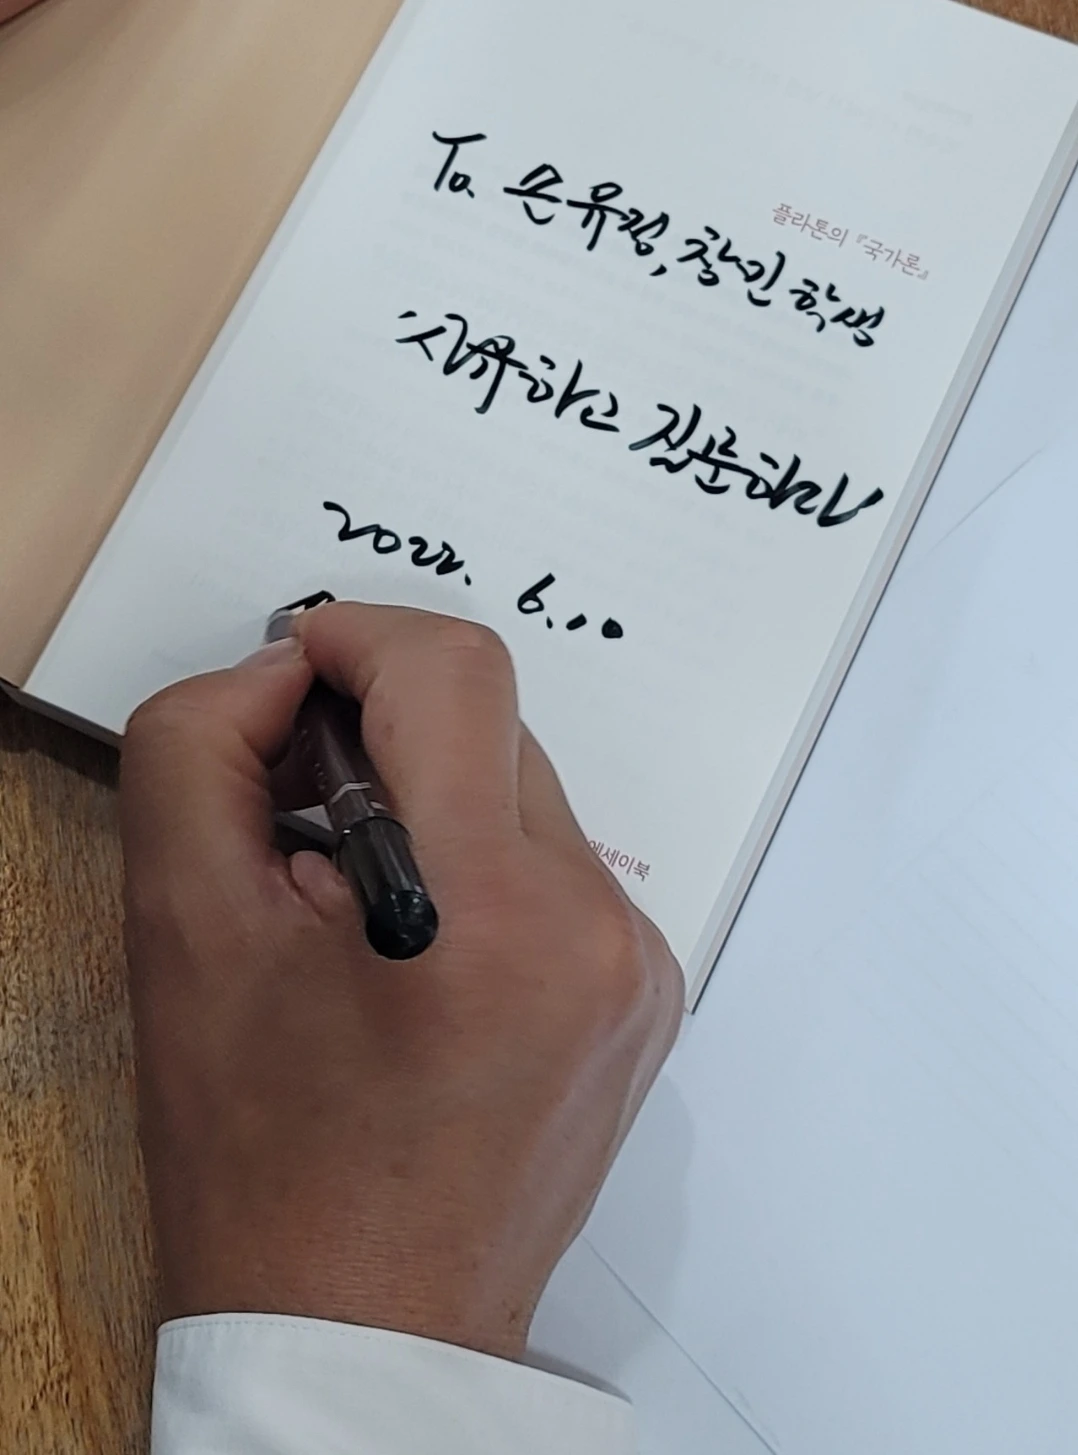 플라톤의 『국가론』
To. 은유정, 창민 학생
사유하고 질문하라
2022. 6. 10
에세이북